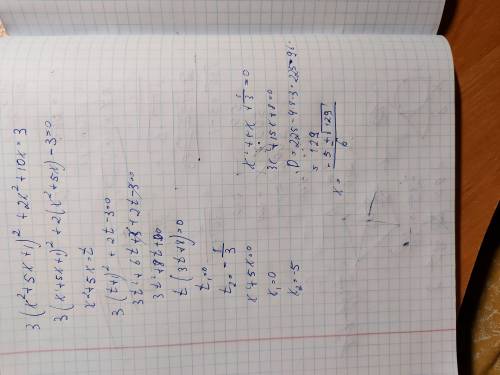 3(x²+5x+1)²+2x²+10x=3
3(x²+5x+1)²+2(x²+5x)-3=0
x²+5x=t
3(t+1)²+2t-3=0
3t²+6t+3+2t-3=0
3t²+8t=0
t(3t+8)=0
t₁=0
t₂=-8/3
x²+5x=0
x₁=0
x₂=-5
3x²+15x+8=0
D=225-4·8·3=225-96
=129
x=